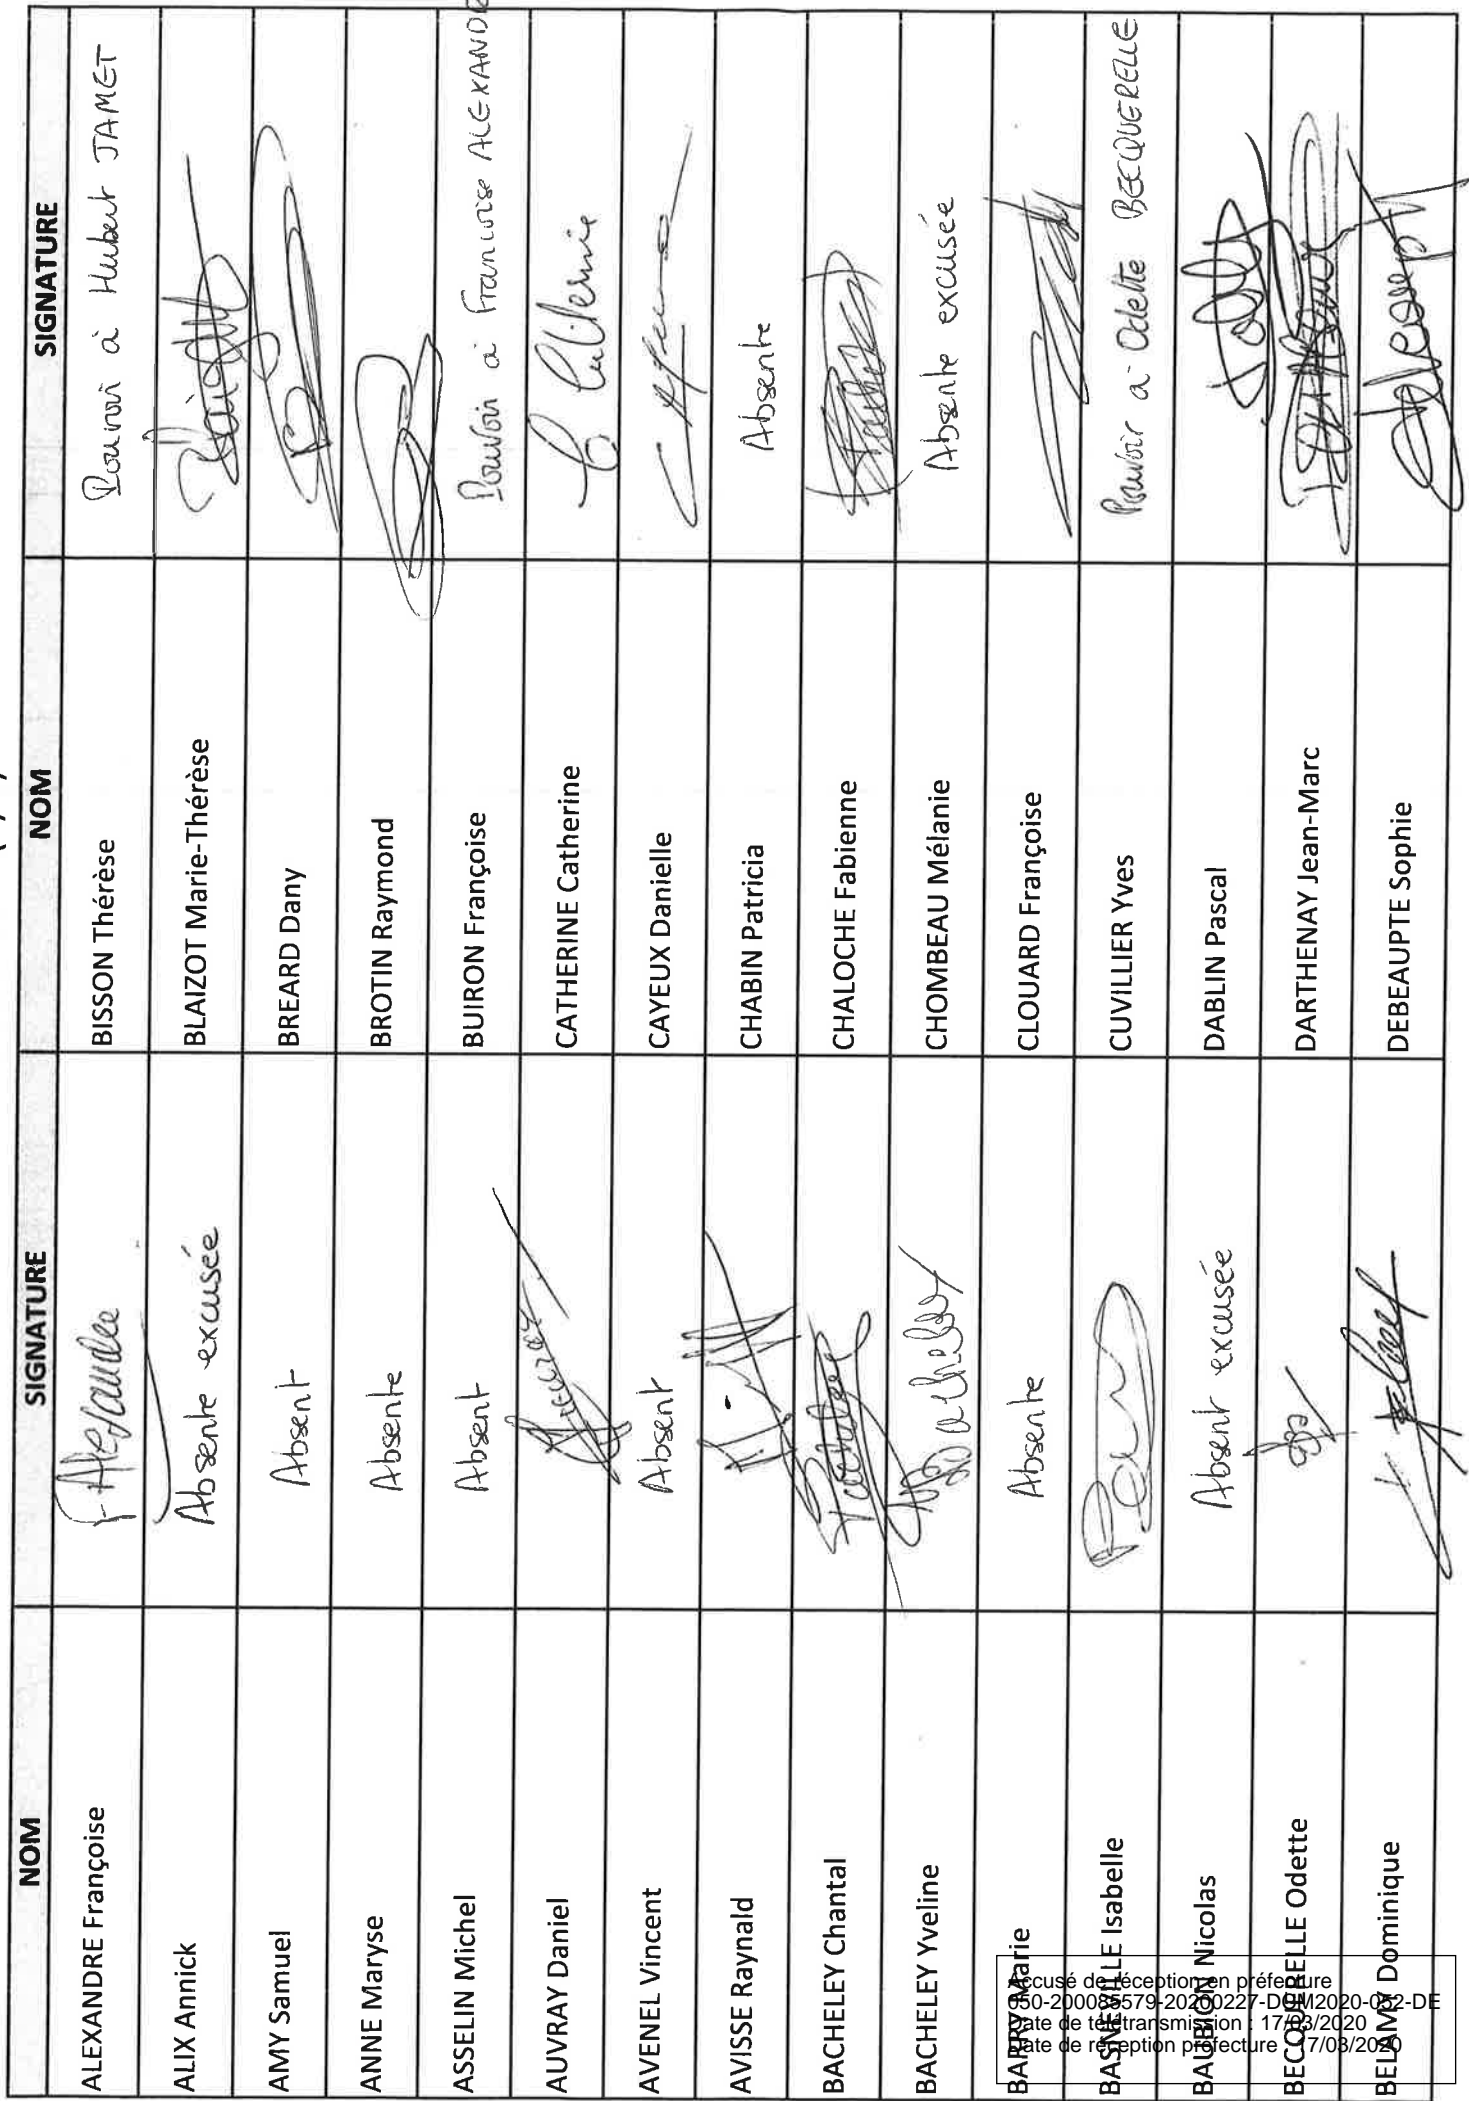 NOM SIGNATURE NOM SIGNATURE
ALEXANDRE Françoise F. Alexandre BISSON Thérèse Pouvoir à Hubert JAMET
ALIX Annick Absente excusée BLAIZOT Marie-Thérèse
AMY Samuel Absent BREARD Dany
ANNE Maryse Absente BROTIN Raymond
ASSELIN Michel Absent BUIRON Françoise Pouvoir à Françoise ALEXANDRE
AUVRAY Daniel CATHERINE Catherine C Catherine
AVENEL Vincent Absent CAYEUX Danielle
AVISSE Raynald CHABIN Patricia Absente
BACHELEY Chantal CHALOCHE Fabienne
BACHELEY Yveline CHOMBEAU Mélanie Absente excusée
BARRY Marie Absente CLOUARD Françoise
BASNEVILLE Isabelle CUVILLIER Yves Pouvoir à Odette BECQUERELLE
BAUBION Nicolas Absent excusée DABLIN Pascal
BECQUERELLE Odette DARTHENAY Jean-Marc
BELAMY Dominique DEBEAUPTE Sophie
Accusé de réception en préfecture
050-200085579-20200227-DCM2020-052-DE
Date de télétransmission : 17/03/2020
Date de réception préfecture : 17/03/2020